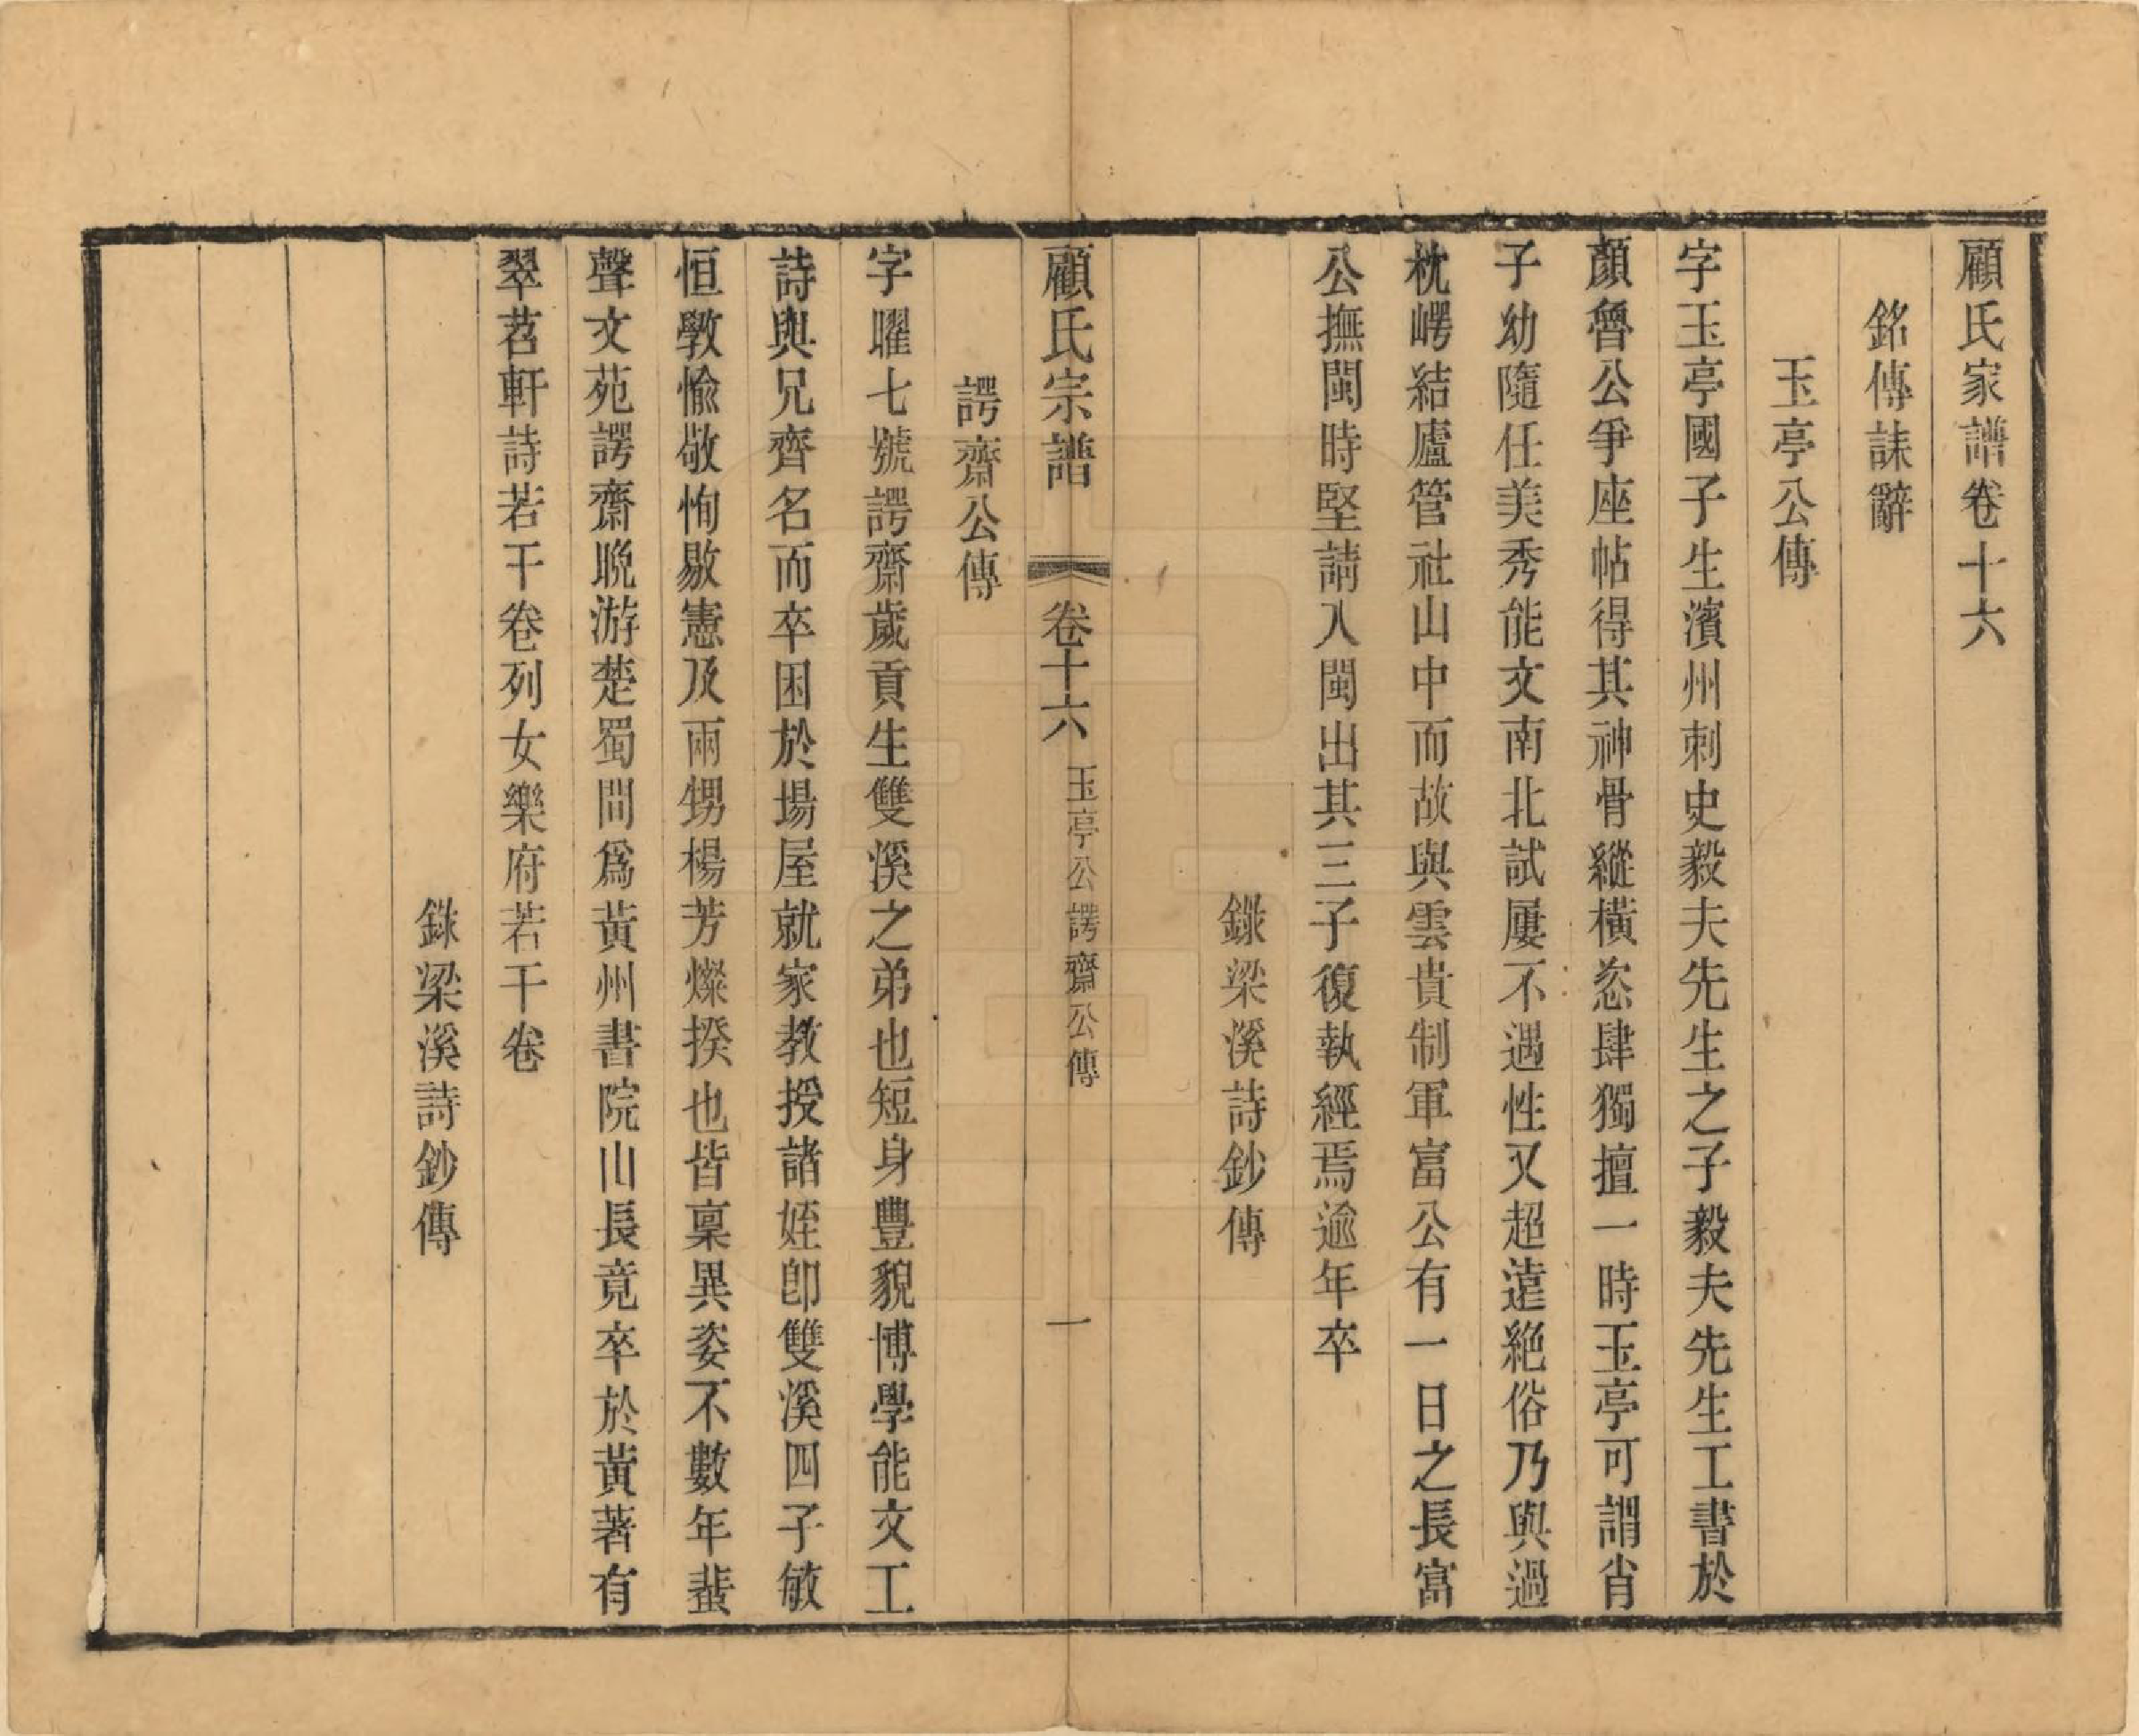 顧氏家譜卷十六
銘傳誄辭
玉亭公傳
字玉亭國子生濱州刺史毅夫先生之子毅夫先生工書於
顏魯公爭座帖得其神骨縱橫恣肆獨擅一時玉亭可謂肖
子幼隨任美秀能文南北試屢不遇性又超遠絶俗乃與過
枕崿結廬管社山中而故與雲貴制軍富公有一日之長富
公撫閩時堅請入閩出其三子復執經焉逾年卒
錄梁溪詩鈔傳
顧氏宗譜 卷十六 玉亭公諤齋公傳 一
諤齋公傳
字曜七號諤齋歲貢生雙溪之弟也短身豐貌博學能文工
詩與兄齊名而卒困於場屋就家教授諸姪卽雙溪四子敏
恒敩愉敬恂敭憲及兩甥楊芳燦揆也皆稟異姿不數年蜚
聲文苑諤齋晩游楚蜀間爲黃州書院山長竟卒於黃著有
翠苕軒詩若干卷列女樂府若干卷
錄梁溪詩鈔傳